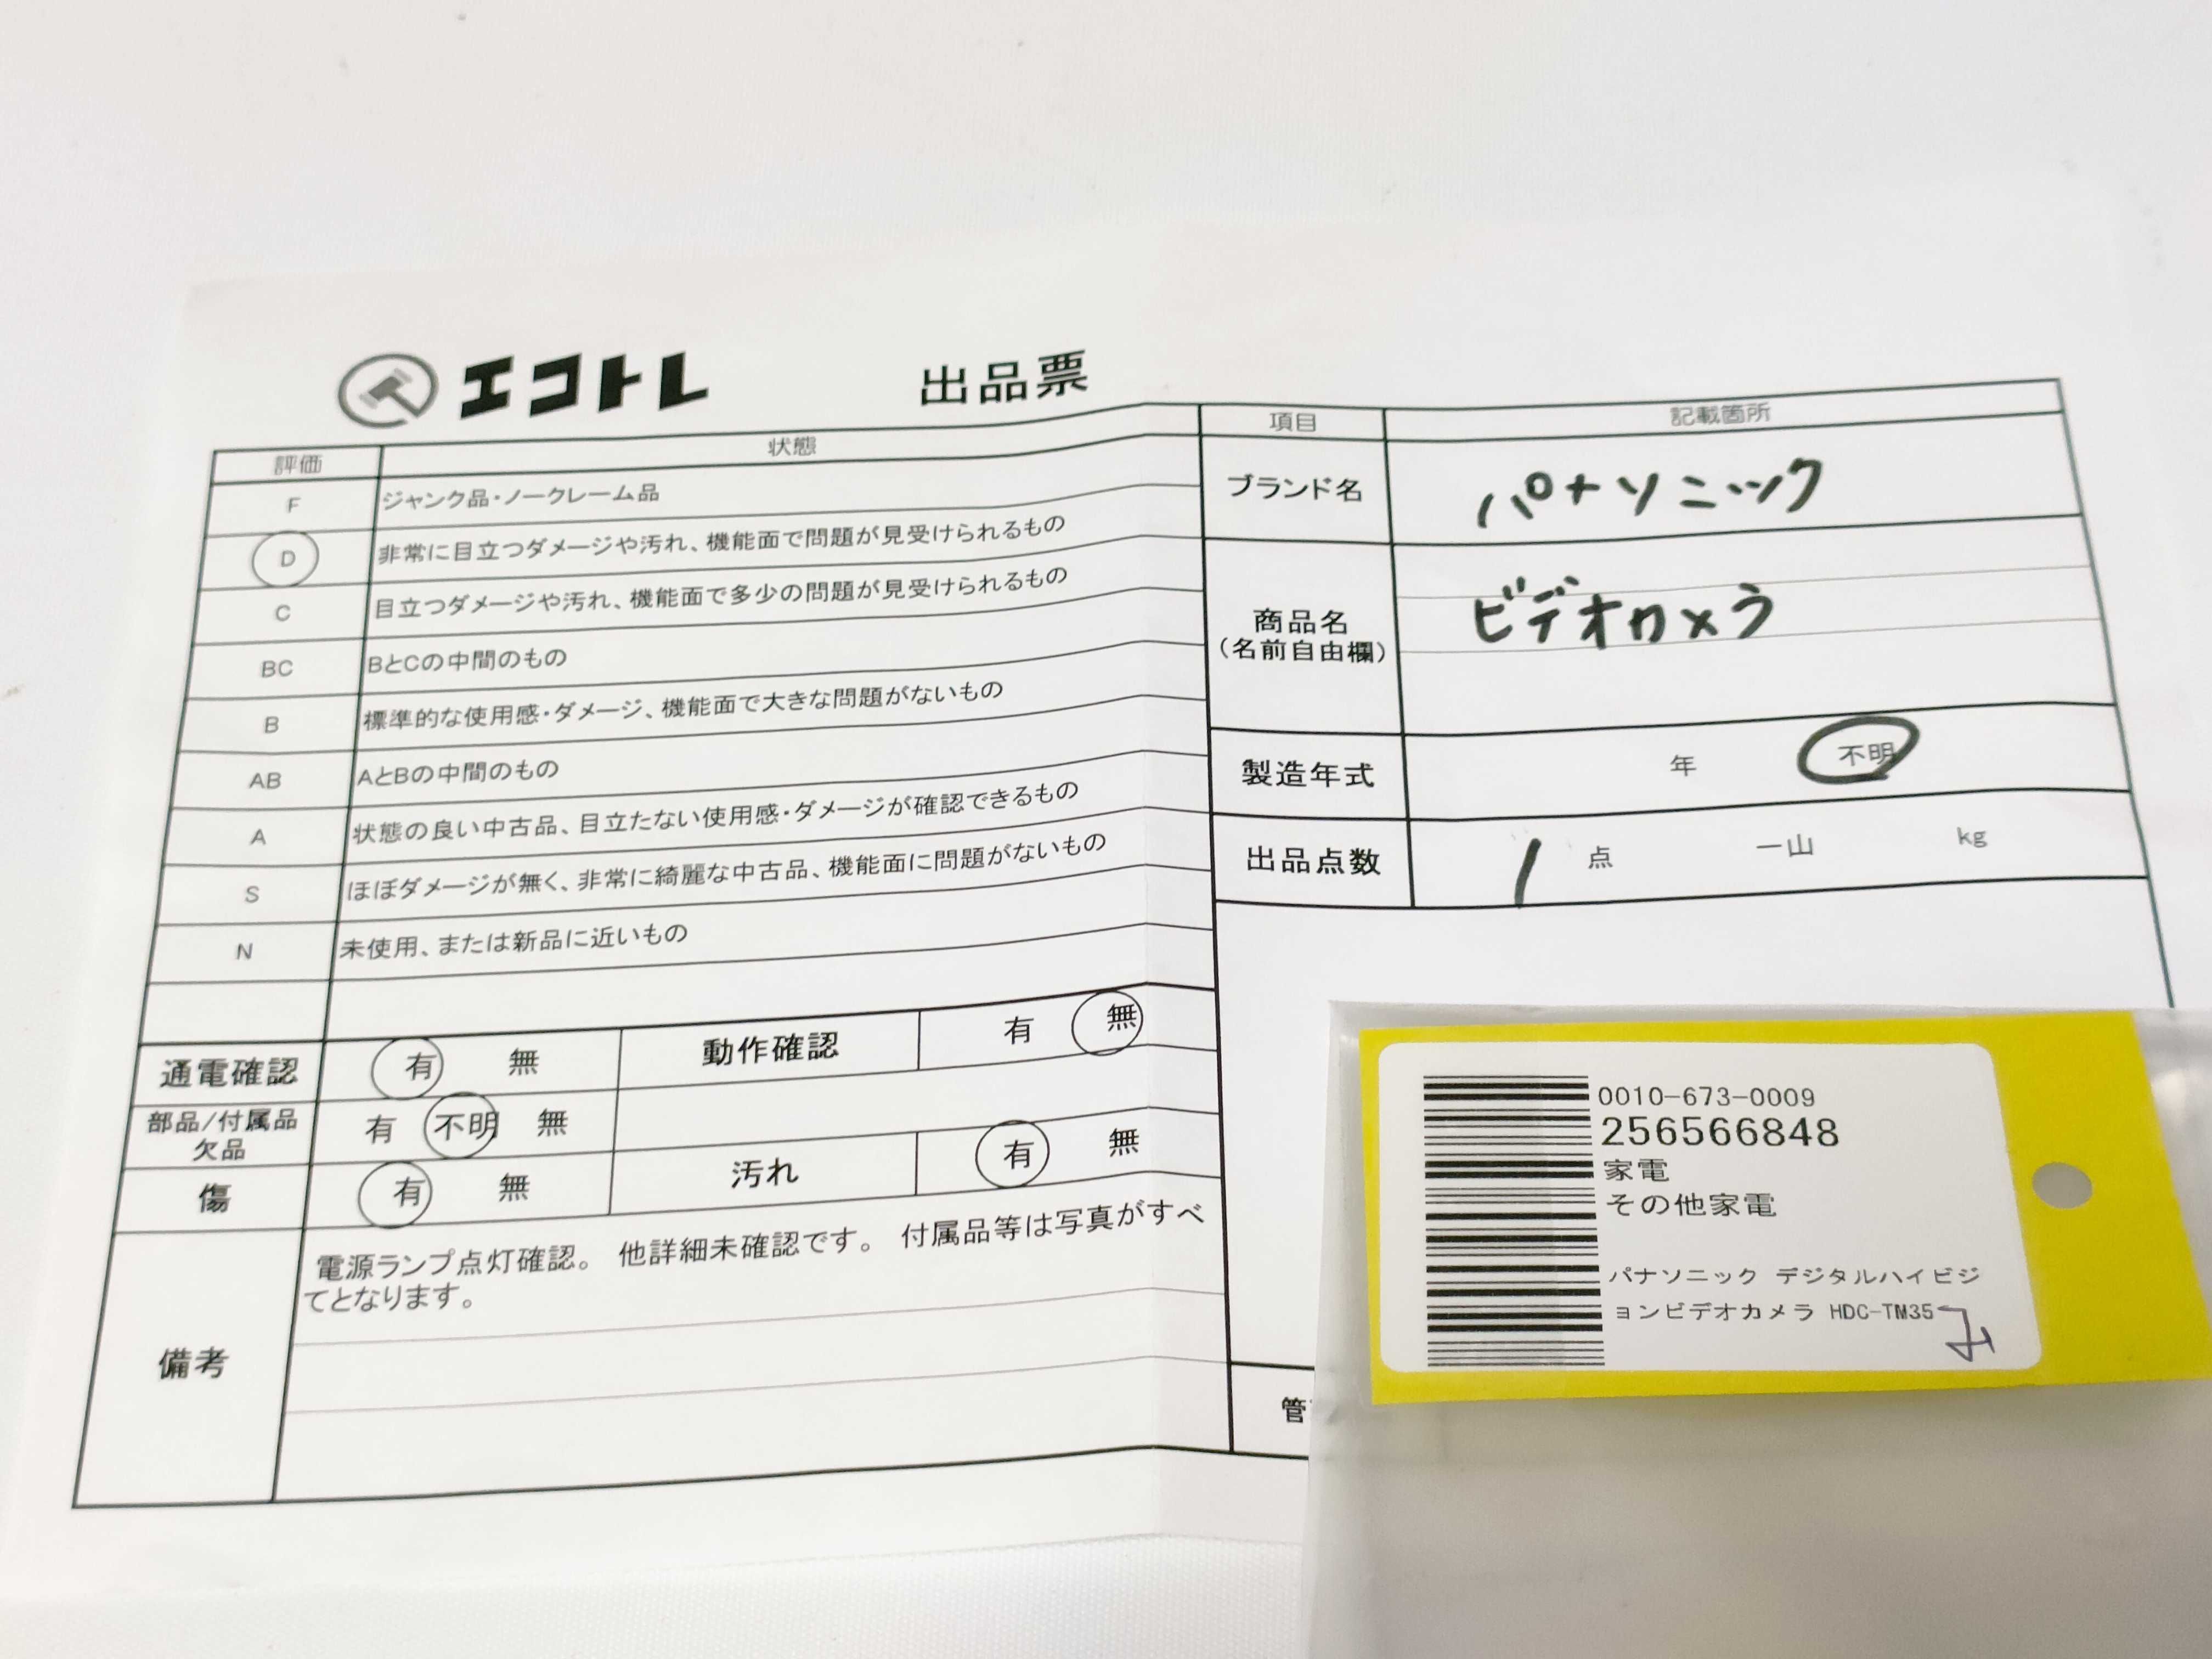 エコトレ 出品票
評価 状態
F ジャンク品・ノークレーム品
D 非常に目立つダメージや汚れ、機能面で問題が見受けられるもの
C 目立つダメージや汚れ、機能面で多少の問題が見受けられるもの
BC BとCの中間のもの
B 標準的な使用感・ダメージ、機能面で大きな問題がないもの
AB AとBの中間のもの
A 状態の良い中古品、目立たない使用感・ダメージが確認できるもの
S ほぼダメージが無く、非常に綺麗な中古品、機能面に問題がないもの
N 未使用、または新品に近いもの
通電確認 有 無 動作確認 有 無
部品/付属品 有 不明 無
欠品
傷 有 無 汚れ 有 無
備考
電源ランプ点灯確認。 他詳細未確認です。 付属品等は写真がすべ
てとなります。
項目 記載箇所
ブランド名 パナソニック
商品名 ビデオカメラ
(名前自由欄)
製造年式 年 不明
出品点数 1 点 一山 kg
管
0010-673-0009
256566848
家電
その他家電
パナソニック デジタルハイビジ
ョンビデオカメラ HDC-TM35